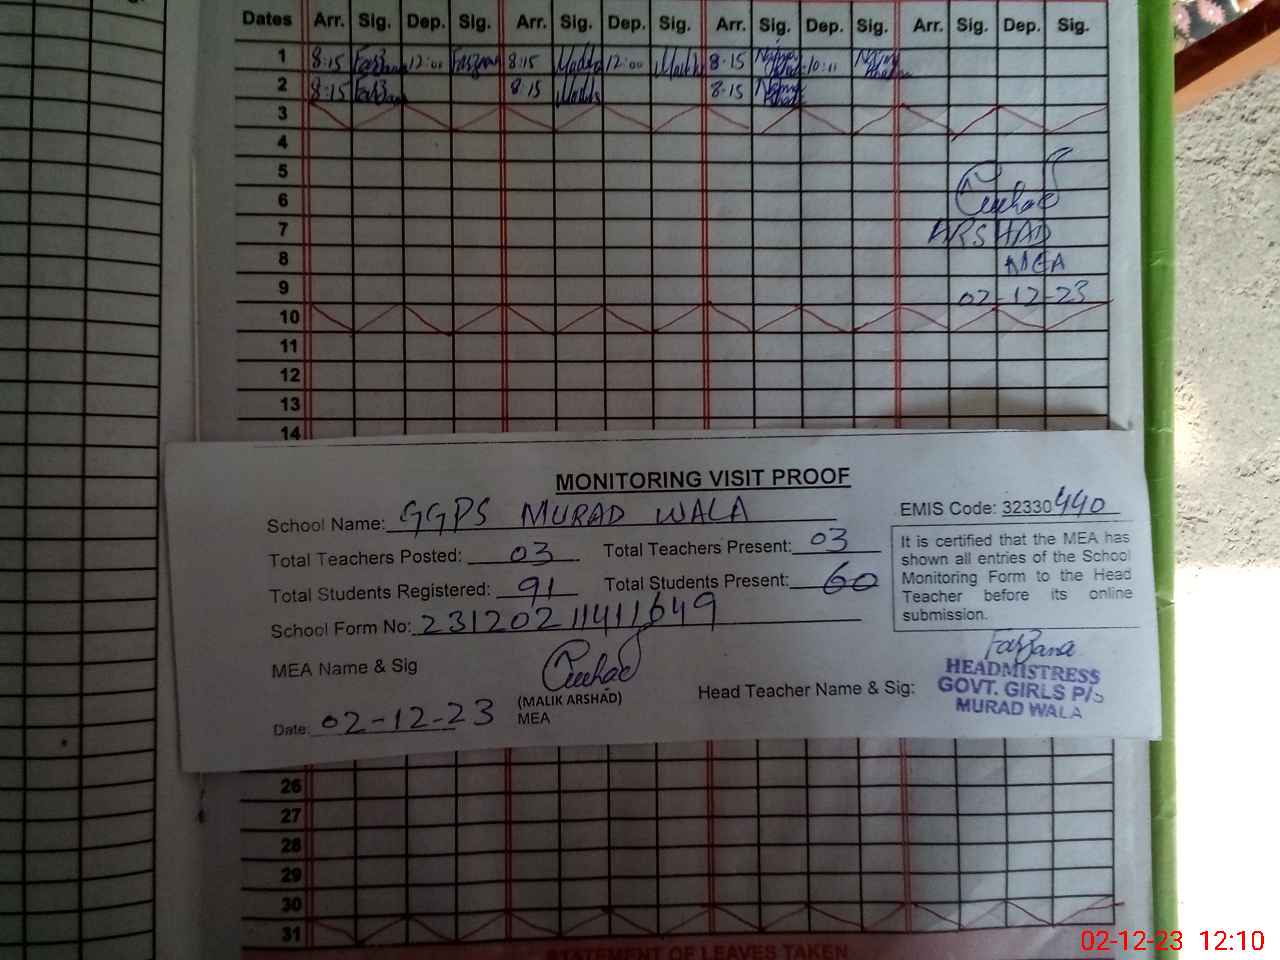 Dates Arr. Sig. Dep. Sig. Arr. Sig. Dep. Sig. Arr. Sig. Dep. Sig. Arr. Sig. Dep. Sig.
1 8:15 Farzana 12:00 Farzana 8:15 12:00 8-15 Najma
2 8:15 Farzana 8:15 8-15 Najma
3
4
5
6
7 ARSHAD
8 MEA
9 02-12-23
10
11
12
13
14
MONITORING VISIT PROOF
School Name: GGPS MURAD WALA EMIS Code: 32330440
Total Teachers Posted: 03 Total Teachers Present: 03
Total Students Registered: 91 Total Students Present: 60
School Form No: 23120211411649
It is certified that the MEA has
shown all entries of the School
Monitoring Form to the Head
Teacher before its online
submission.
MEA Name & Sig Arshad
(MALIK ARSHAD)
MEA
Date: 02-12-23
Head Teacher Name & Sig: Farzana
HEADMISTRESS
GOVT. GIRLS P/S
MURAD WALA
26
27
28
29
30
31
STATEMENT OF LEAVES TAKEN
02-12-23 12:10